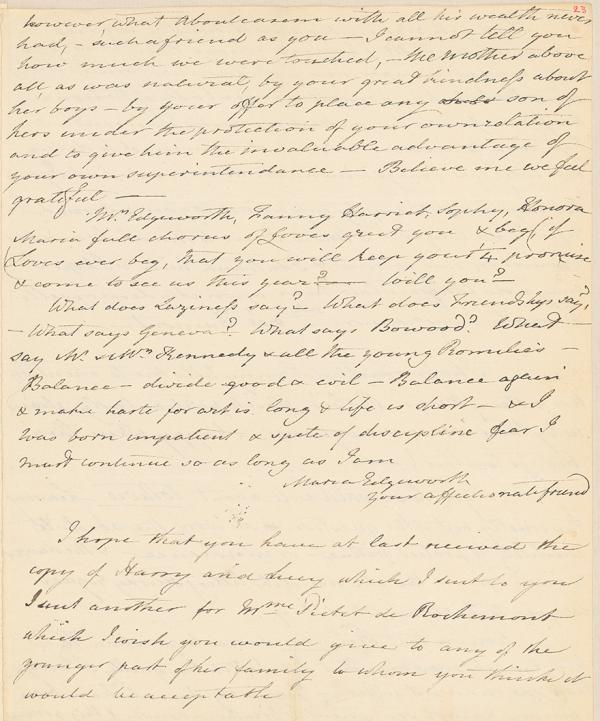 23
however, what Aboulcasem with all his wealth never
had, – such a friend as you – I cannot tell you
how much we were touched, – the Mother above
all, as was natural, by your great kindness about
her boys – by your offer to place any son of
hers under the protection of your own relation
and to give him the invaluable advantage of
your own superintendance – Believe me we feel
grateful –
Mrs Edgeworth, Fanny Harriet, Sophy, Honora
Maria full chorus of Loves greet you & beg (if
Loves ever beg, that you will keep your promise
& come to see us this year? – Will you? –
What does Laziness say? What does Friendship say?,
– What says Geneva? What says Bowood? What –
say Mr. & Mrs Kennedy & all the young Romillies –
Balance – divide good & evil – Balance again
& make haste for art is long & life is short – & I
was born impatient & spite of discipline fear I
must continue so as long as I am
Maria Edgeworth
Your affectionate friend
I hope that you have at last received the
copy of Harry and Lucy which I sent to you
I sent another for Mme Pictet de Rochemont
which I wish you would give to any of the
younger part of her family to whom you think it
would be acceptable